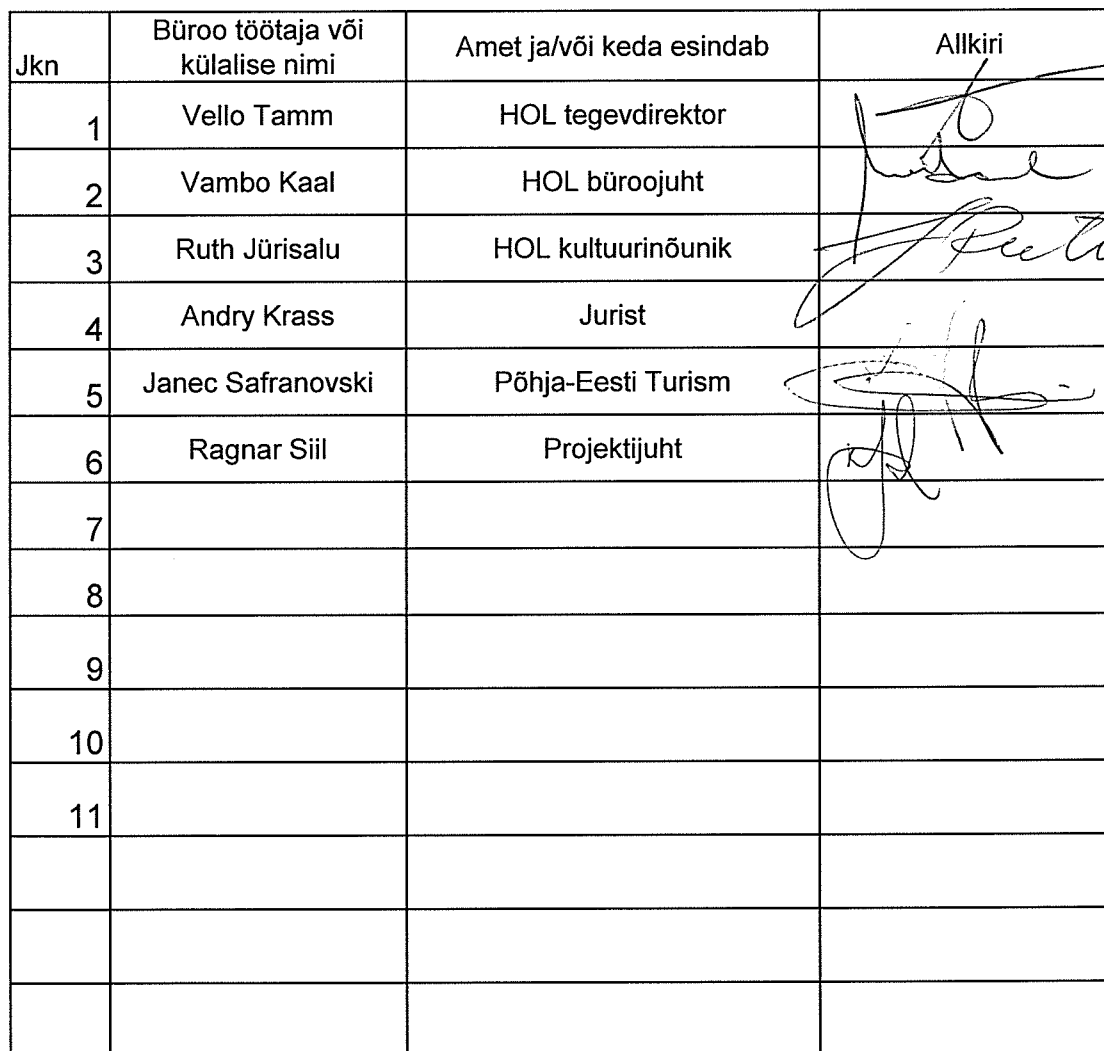 Jkn Büroo töötaja või külalise nimi Amet ja/või keda esindab Allkiri
1 Vello Tamm HOL tegevdirektor
2 Vambo Kaal HOL büroojuht
3 Ruth Jürisalu HOL kultuurinõunik
4 Andry Krass Jurist
5 Janec Safranovski Põhja-Eesti Turism
6 Ragnar Siil Projektijuht
7
8
9
10
11